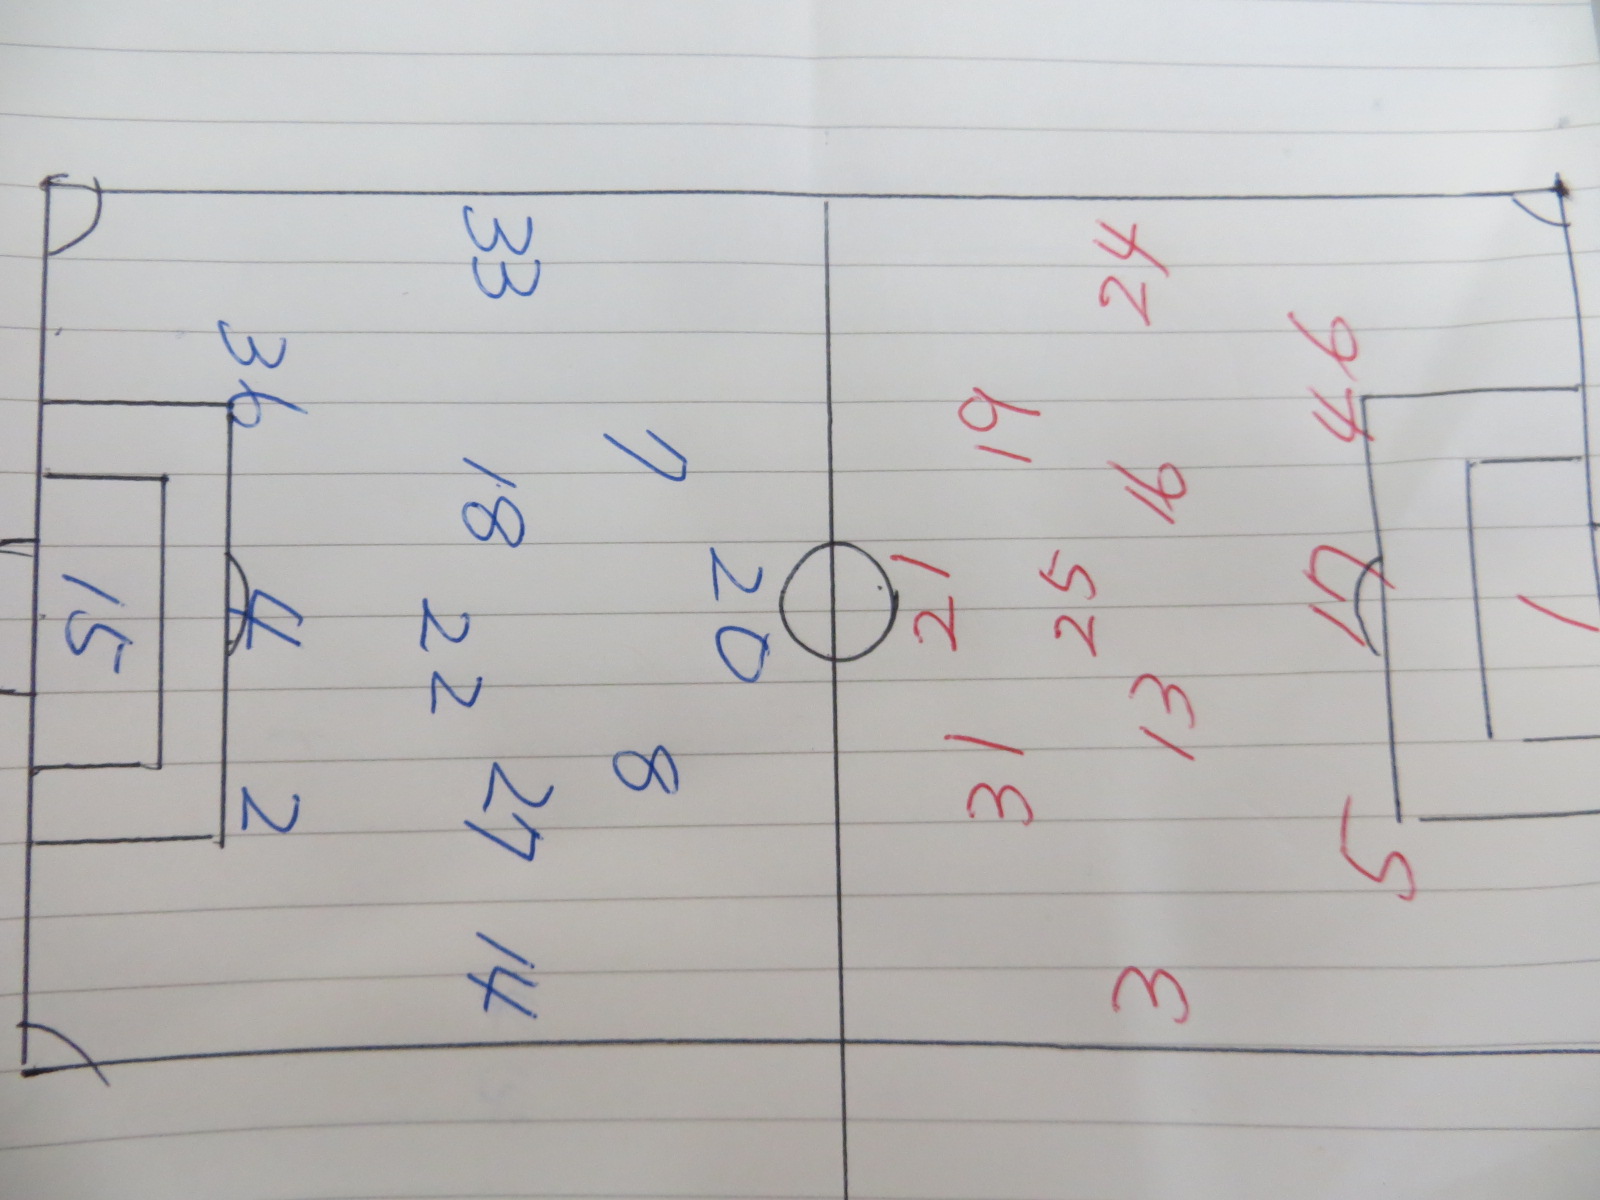 15
36
4
2
33
18
22
27
14
7
8
20
21
19
31
25
24
16
13
3
46
17
5
1